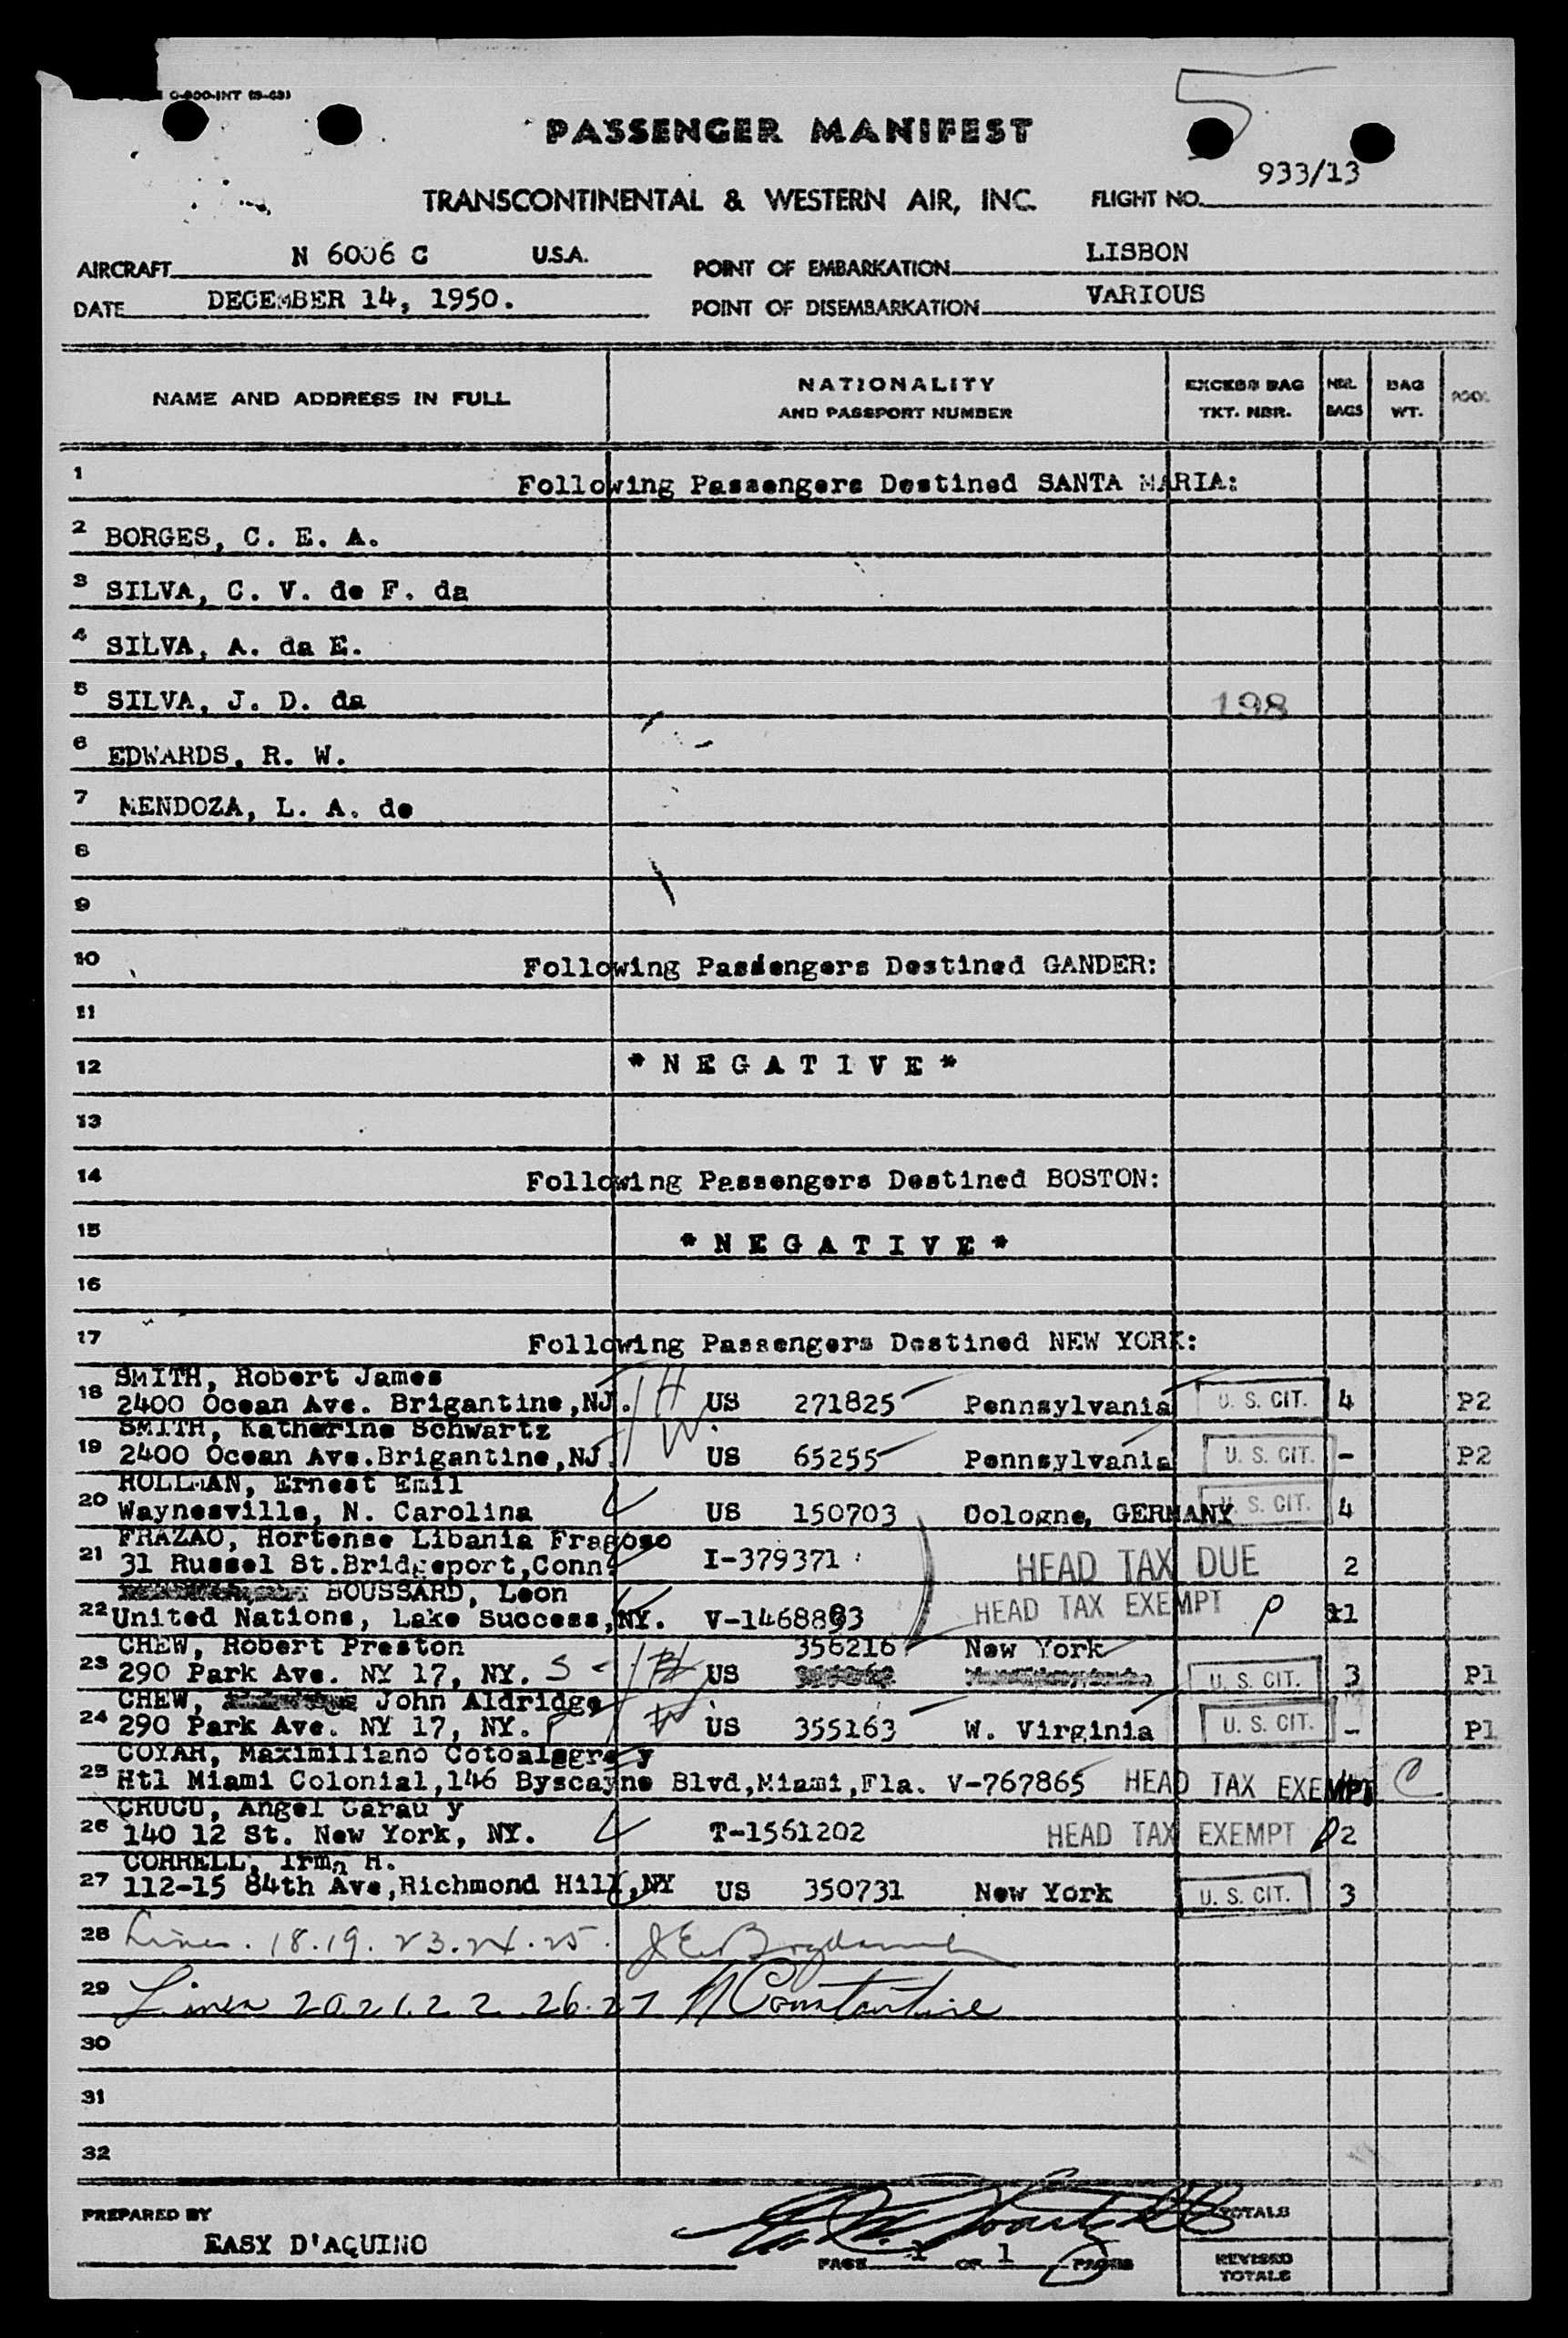 O-800-INT
5
PASSENGER MANIFEST
TRANSCONTINENTAL & WESTERN AIR, INC. FLIGHT NO. 933/13
AIRCRAFT N 6006 C U.S.A. POINT OF EMBARKATION LISBON
DATE DECEMBER 14, 1950. POINT OF DISEMBARKATION VARIOUS
NAME AND ADDRESS IN FULL NATIONALITY AND PASSPORT NUMBER EXCESS BAG TKT. NBR. NBR. BAGS BAG WT. POOL
1 Following Passengers Destined SANTA MARIA:
2 BORGES, C. E. A.
3 SILVA, C. V. de F. da
4 SILVA, A. da E.
5 SILVA, J. D. da 198
6 EDWARDS, R. W.
7 MENDOZA, L. A. de
8
9
10 Following Passengers Destined GANDER:
11
12 * N E G A T I V E *
13
14 Following Passengers Destined BOSTON:
15 * N E G A T I V E *
16
17 Following Passengers Destined NEW YORK:
SMITH, Robert James
18 2400 Ocean Ave. Brigantine,NJ. H US 271825 Pennsylvania U. S. CIT. 4 P2
SMITH, Katherine Schwartz
19 2400 Ocean Ave.Brigantine,NJ. W US 65255 Pennsylvania U. S. CIT. - P2
HOLLMAN, Ernest Emil
20 Waynesville, N. Carolina US 150703 Cologne, GERMANY U. S. CIT. 4
FRAZAO, Hortense Libania Fragoso
21 31 Russel St.Bridgeport,Conn. I-379371 HEAD TAX DUE 2
BOUSSARD, Leon
22 United Nations, Lake Success,NY. V-1468893 HEAD TAX EXEMPT P 1
CHEW, Robert Preston 356216 New York
23 290 Park Ave. NY 17, NY. S - US U. S. CIT. 3 P1
CHEW, John Aldridge
24 290 Park Ave. NY 17, NY. US 355163 W. Virginia U. S. CIT. - P1
COYAR, Maximiliano Cotoalegre y
25 Htl Miami Colonial,146 Byscayne Blvd,Miami,Fla. V-767865 HEAD TAX EXEMPT C
CRUCU, Angel Garau y
26 140 12 St. New York, NY. T-1561202 HEAD TAX EXEMPT P 2
CORRELL, Irma H.
27 112-15 84th Ave,Richmond Hill,NY US 350731 New York U. S. CIT. 3
28 Lines. 18.19. 23.24.25.
29 Lines 20.21.22.26.27 N Constantine
30
31
32
PREPARED BY EASY D'AQUINO TOTALS
PAGE 1 OF 1 PAGES REVISED TOTALS